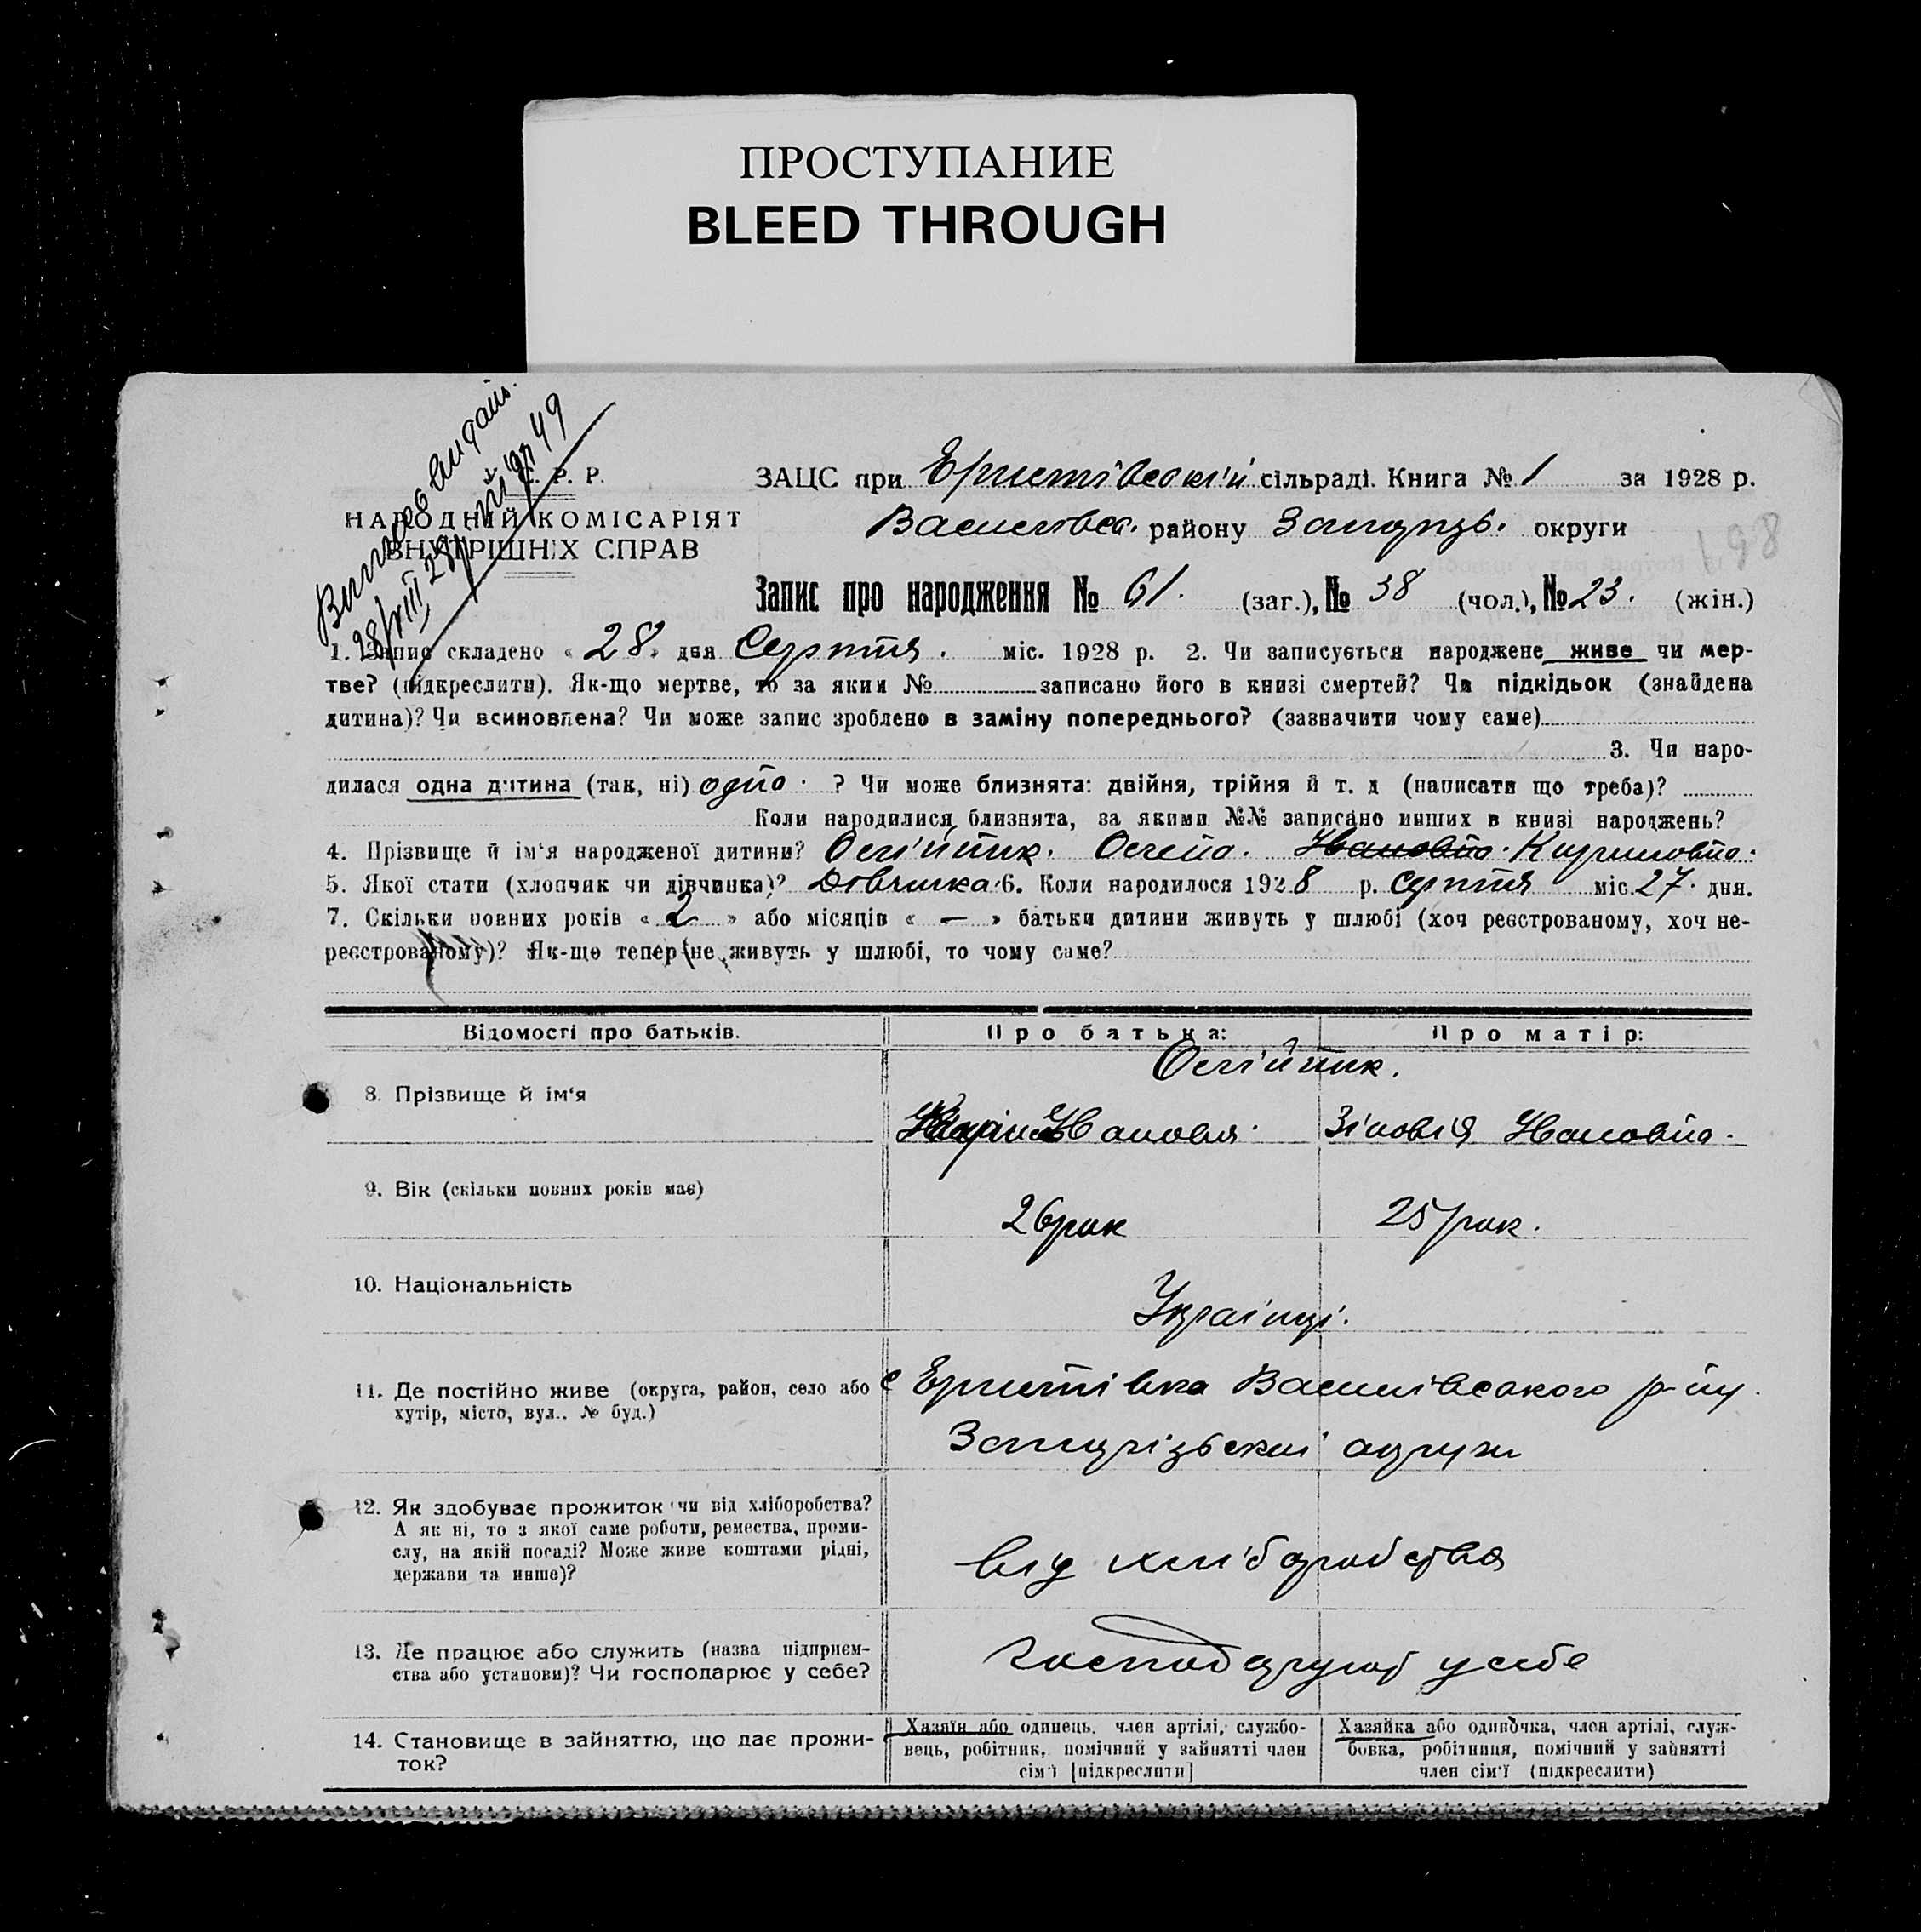 ПРОСТУПАНИЕ
BLEED THROUGH
С. Р. Р.
НАРОДНІЙ КОМІСАРІЯТ
ВНУТРІШНІХ СПРАВ
ЗАЦС при Еристівській сільраді. Книга № 1 за 1928 р.
Василівськ. району Запоріз. округи
198
Запис про народження № 61. (заг.), № 38 (чол.), № 23. (жін.)
1. Запис складено « 28 » дня Серпня. міс. 1928 р. 2. Чи записується народжене живе чи мер-
тве? (підкреслити). Як-що мертве, то за яким № записано його в книзі смертей? Чи підкідьок (знайдена
дитина)? Чи всиновлена? Чи може запис зроблено в заміну попереднього? (зазначити чому саме)
3. Чи наро-
дилася одна дитина (так, ні) одна. ? Чи може близнята: двійня, трійня й т. д (написати що треба)?
Коли народилися близнята, за якими №№ записано инших в книзі народжень?
4. Прізвище й ім'я народженої дитини? Олійник. Олена. Івановна. Кириловна.
5. Якої стати (хлопчик чи дівчинка)? Дівчинка. 6. Коли народилося 1928 р. Серпня міс. 27. дня.
7. Скільки повних років « 2 » або місяців « — » батьки дитини живуть у шлюбі (хоч реєстрованому, хоч не-
реєстрованому)? Як-що тепер не живуть у шлюбі, то чому саме?
Відомості про батьків.
Про батька:
Про матір:
8. Прізвище й ім'я
Олійник.
Зіновія Івановна.
9. Вік (скільки повних років має)
26 рок
25 рок.
10. Національність
Українці.
11. Де постійно живе (округа, район, село або
хутір, місто, вул.. № буд.)
с Еристівка Василівського р-ну.
Запорізької округи
12. Як здобуває прожиток чи від хліборобства?
А як ні, то з якої саме роботи, ремества, проми-
слу, на якій посаді? Може живе коштами рідні,
держави та инше)?
від хліборобства
13. Де працює або служить (назва підприєм-
ства або установи)? Чи господарює у себе?
господарують у себе
14. Становище в зайняттю, що дає прожи-
ток?
Хазяїн або одинець. член артілі, службо-
вець, робітник, помічний у зайнятті член
сім'ї [підкреслити]
Хазяйка або одиночка, член артілі, служ-
бовка, робітниця, помічний у зайнятті
член сім'ї (підкреслити)